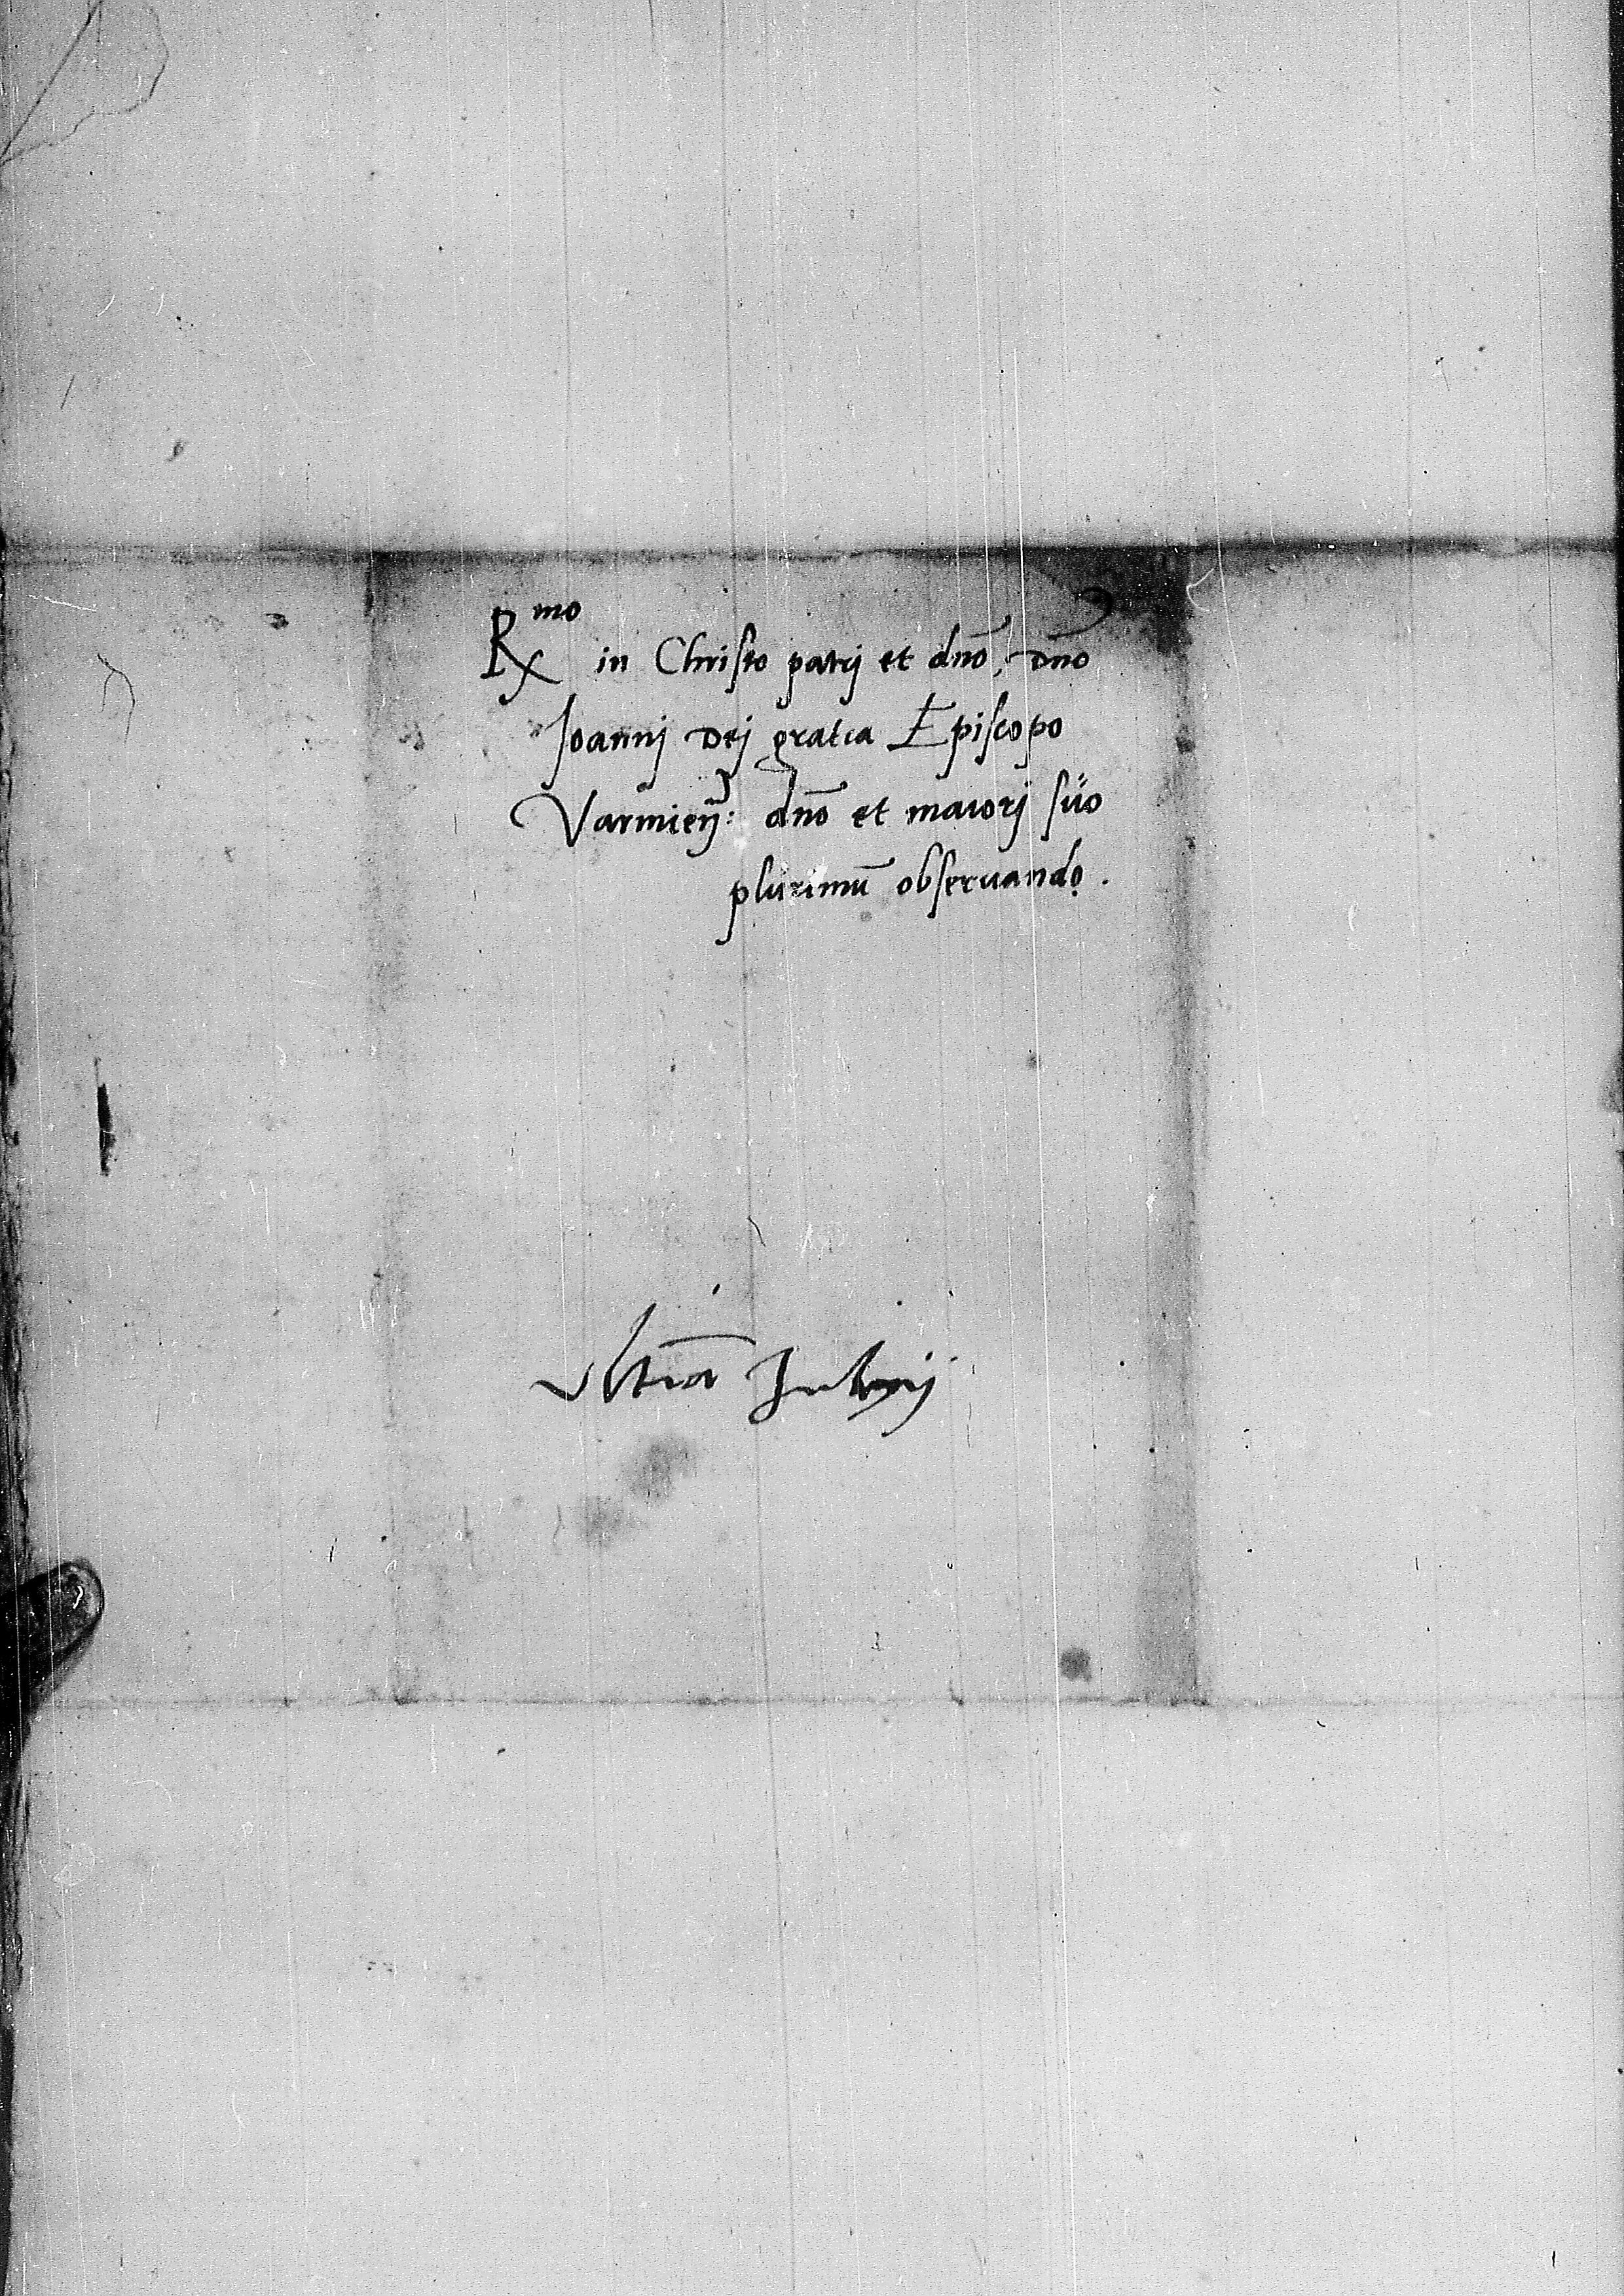 Rmo in Christo patrj et dno, dno
Joannj Dej gratia Episcopo
Varmieñ: dno et maiorj suo
plurimū obseruando.
Vltīa Julij